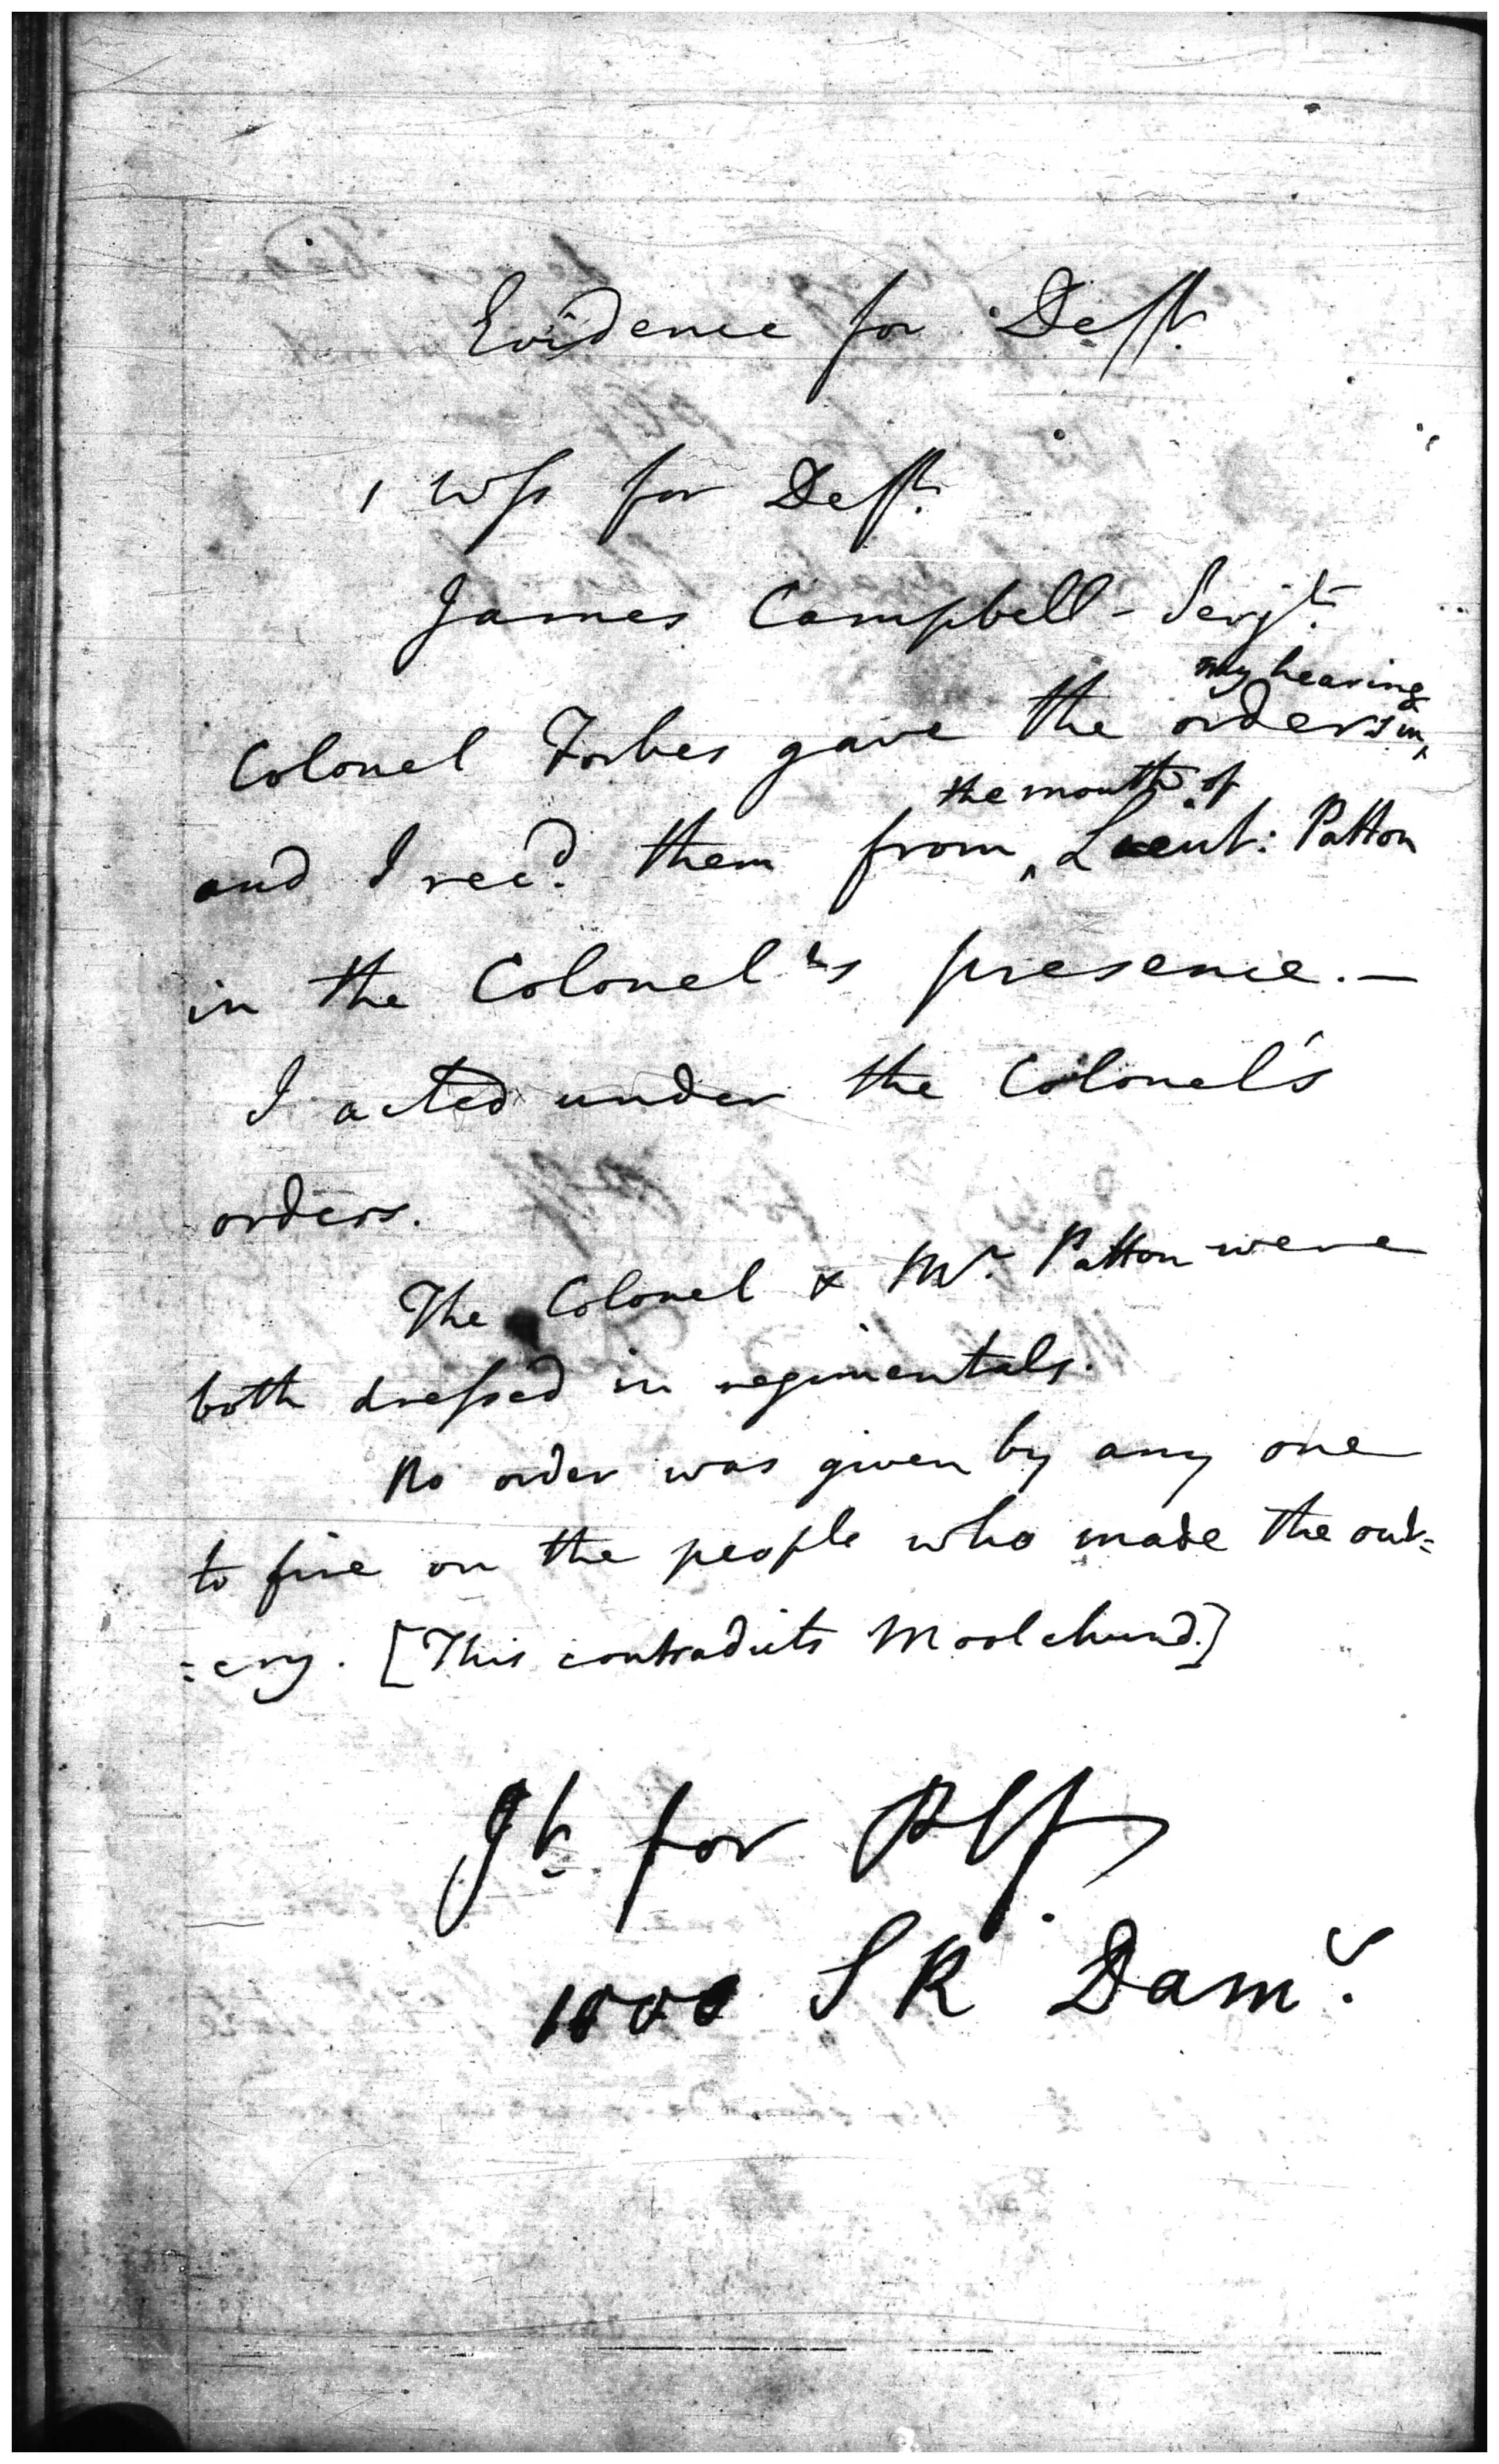 Evidence for Deft.
1 Wss for Deft.
James Campbell - Serjt.
my hearing
Colonel Forbes gave the orders in
the mouth of
and I recd. them from Lieut: Patton
in the Colonel's presence. —
I acted under the Colonel's
orders.
The Colonel & Mr. Patton were
both dressed in regimentals.
No order was given by any one
to fire on the people who made the out=
=cry. [This contradicts Moolchund.]
Jt. for Plf.
1000 S R Dams.